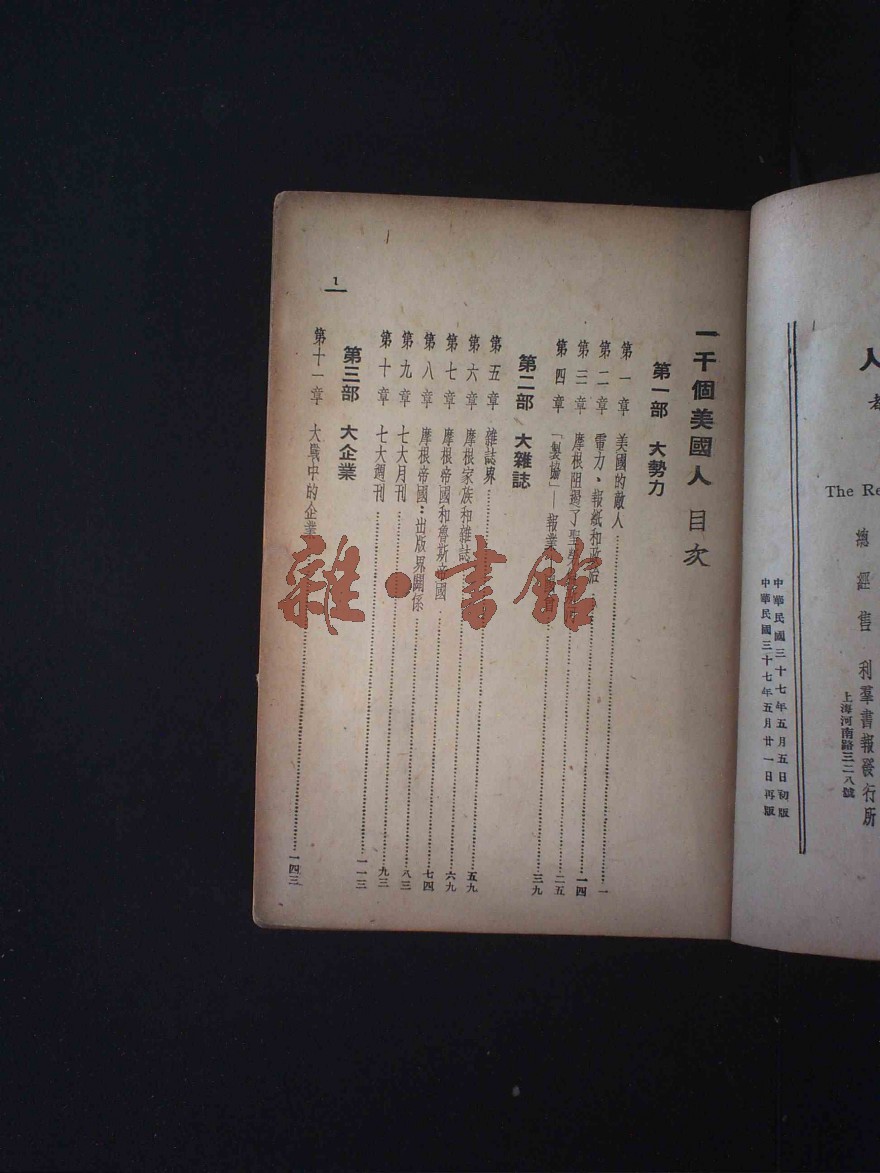 人
者
The Re
總經售 利羣書報發行所
上海河南路三二八號
中華民國三十七年五月五日初版
中華民國三十七年五月廿一日再版
一千個美國人 目次
第一部 大勢力
第一章 美國的敵人……一
第二章 電力、報紙和政治……一四
第三章 摩根阻遏了聖……二五
第四章 「製協」—報業……三九
第二部 大雜誌
第五章 雜誌界……五九
第六章 摩根家族和雜誌……六九
第七章 摩根帝國和魯斯帝國……七四
第八章 摩根帝國：出版界關係……八三
第九章 七大月刊……九三
第十章 七大週刊……一一三
第三部 大企業
第十一章 大戰中的企業……一四三
1
雜·書館